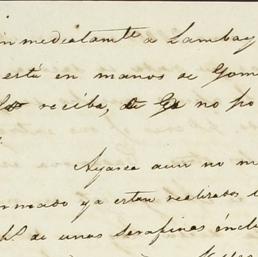 inmediatamte a Lambay
está en manos de Gom
los reciba, de Ga no po
Ayarca aun no m
ormado ya estan realizados
de unas serafinas incl